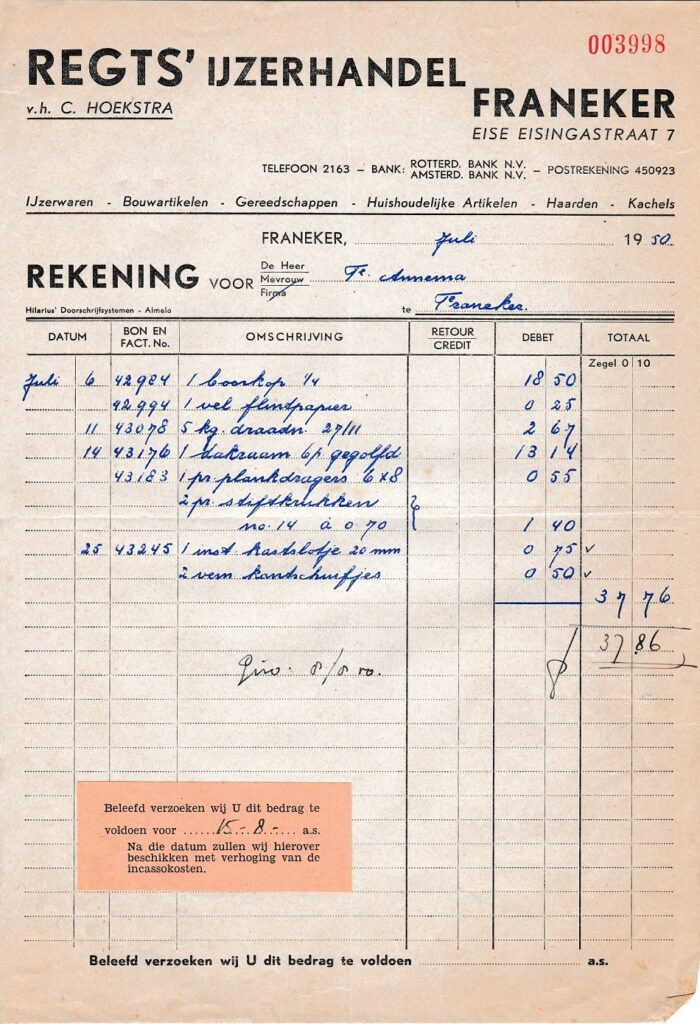 003998
REGTS' IJZERHANDEL
v.h. C. HOEKSTRA
FRANEKER
EISE EISINGASTRAAT 7
TELEFOON 2163 – BANK: ROTTERD. BANK N.V. AMSTERD. BANK N.V. – POSTREKENING 450923
IJzerwaren - Bouwartikelen - Gereedschappen - Huishoudelijke Artikelen - Haarden - Kachels
FRANEKER, Juli 1950.
REKENING VOOR De Heer Mevrouw Firma Fe. Annema
Hilarius' Doorschrijfsystemen - Almelo te Franeker.
DATUM BON EN FACT. No. OMSCHRIJVING RETOUR CREDIT DEBET TOTAAL
Zegel 0 10
Juli 6 42984 1 boorkop 1/4 18 50
42994 1 vel flintpapier 0 25
11 43078 5 kg. draadn. 27/11 2 67
14 43176 1 dakraam 6p gegolfd 13 14
43183 1 pr. plankdragers 6x8 0 55
2 pr. stiftkrukken
no. 14 à 0.70 1 40
25 43245 1 inst. kastslotje 20 mm 0 75 v
2 vern kantschuifjes 0 50 v
37 76
37 86
Giro. 8/8
Beleefd verzoeken wij U dit bedrag te
voldoen voor 15-8- a.s.
Na die datum zullen wij hierover
beschikken met verhoging van de
incassokosten.
Beleefd verzoeken wij U dit bedrag te voldoen a.s.